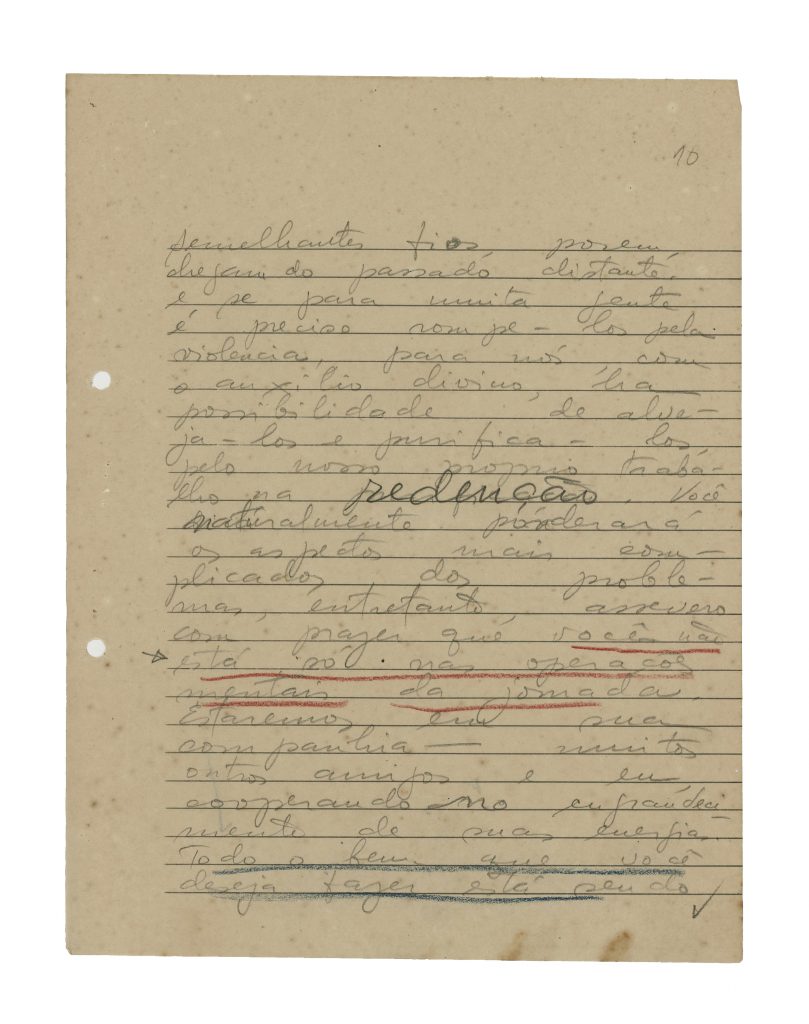 10
semelhantes fios, porem,
chegam do passado distante,
e se para muita gente
é preciso rompe-los pela
violencia, para nós com
o auxilio divino, ha
possibilidade de alve-
ja-los e purifica-los,
pelo nosso proprio traba-
lho na redenção. Você
naturalmente ponderará
os aspectos mais com-
plicados dos proble-
mas, entretanto, assevero
com prazer que você não
está só nas operações
mentais da jornada.
Estaremos em sua
companhia — muitos
outros amigos e eu
cooperando no engrandeci
mento de suas energias.
Todo o bem que você
deseja fazer está sendo